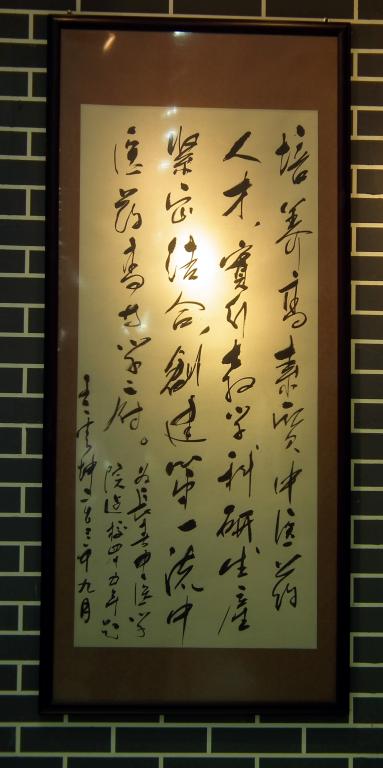 培养高素质中医药
人才，實行教学科研生產
紧密结合，創建第一流中
医药高等学府。
为長春中医学
院建校四十五年题
王云坤二〇〇三年九月